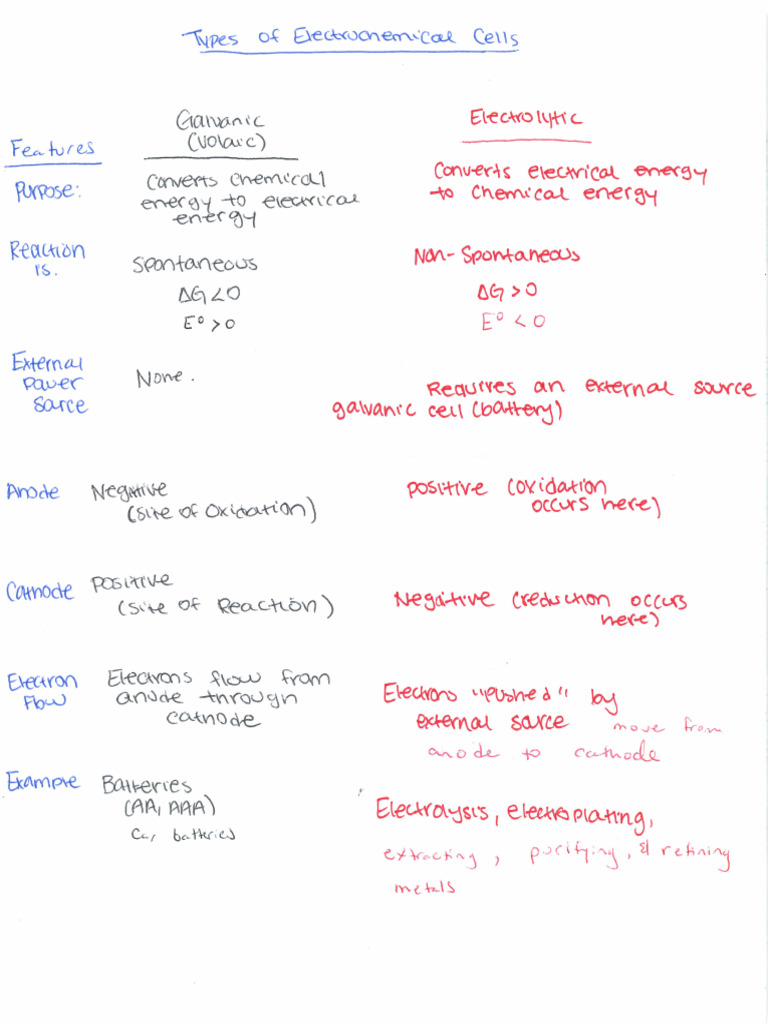 Types of Electrochemical Cells
Galvanic
(Volaic)
Electrolytic
Features
Purpose:
Converts Chemical
energy to electrical
energy
Converts electrical energy
to Chemical energy
Reaction
is.
Spontaneous
ΔG < 0
E° > 0
Non-Spontaneous
ΔG > 0
E° < 0
External
Power
Source
None.
Requires an external source
galvanic cell (battery)
Anode
Negative
(Site of Oxidation)
positive (oxidation
occurs here)
Cathode
Positive
(Site of Reaction)
Negative (reduction occurs
here)
Electron
Flow
Electrons flow from
anode through
cathode
Electrons "pushed" by
external source move from
anode to cathode
Example
Batteries
(AA, AAA)
Car batteries
Electrolysis, electroplating,
extracting, purifying, & refining
metals